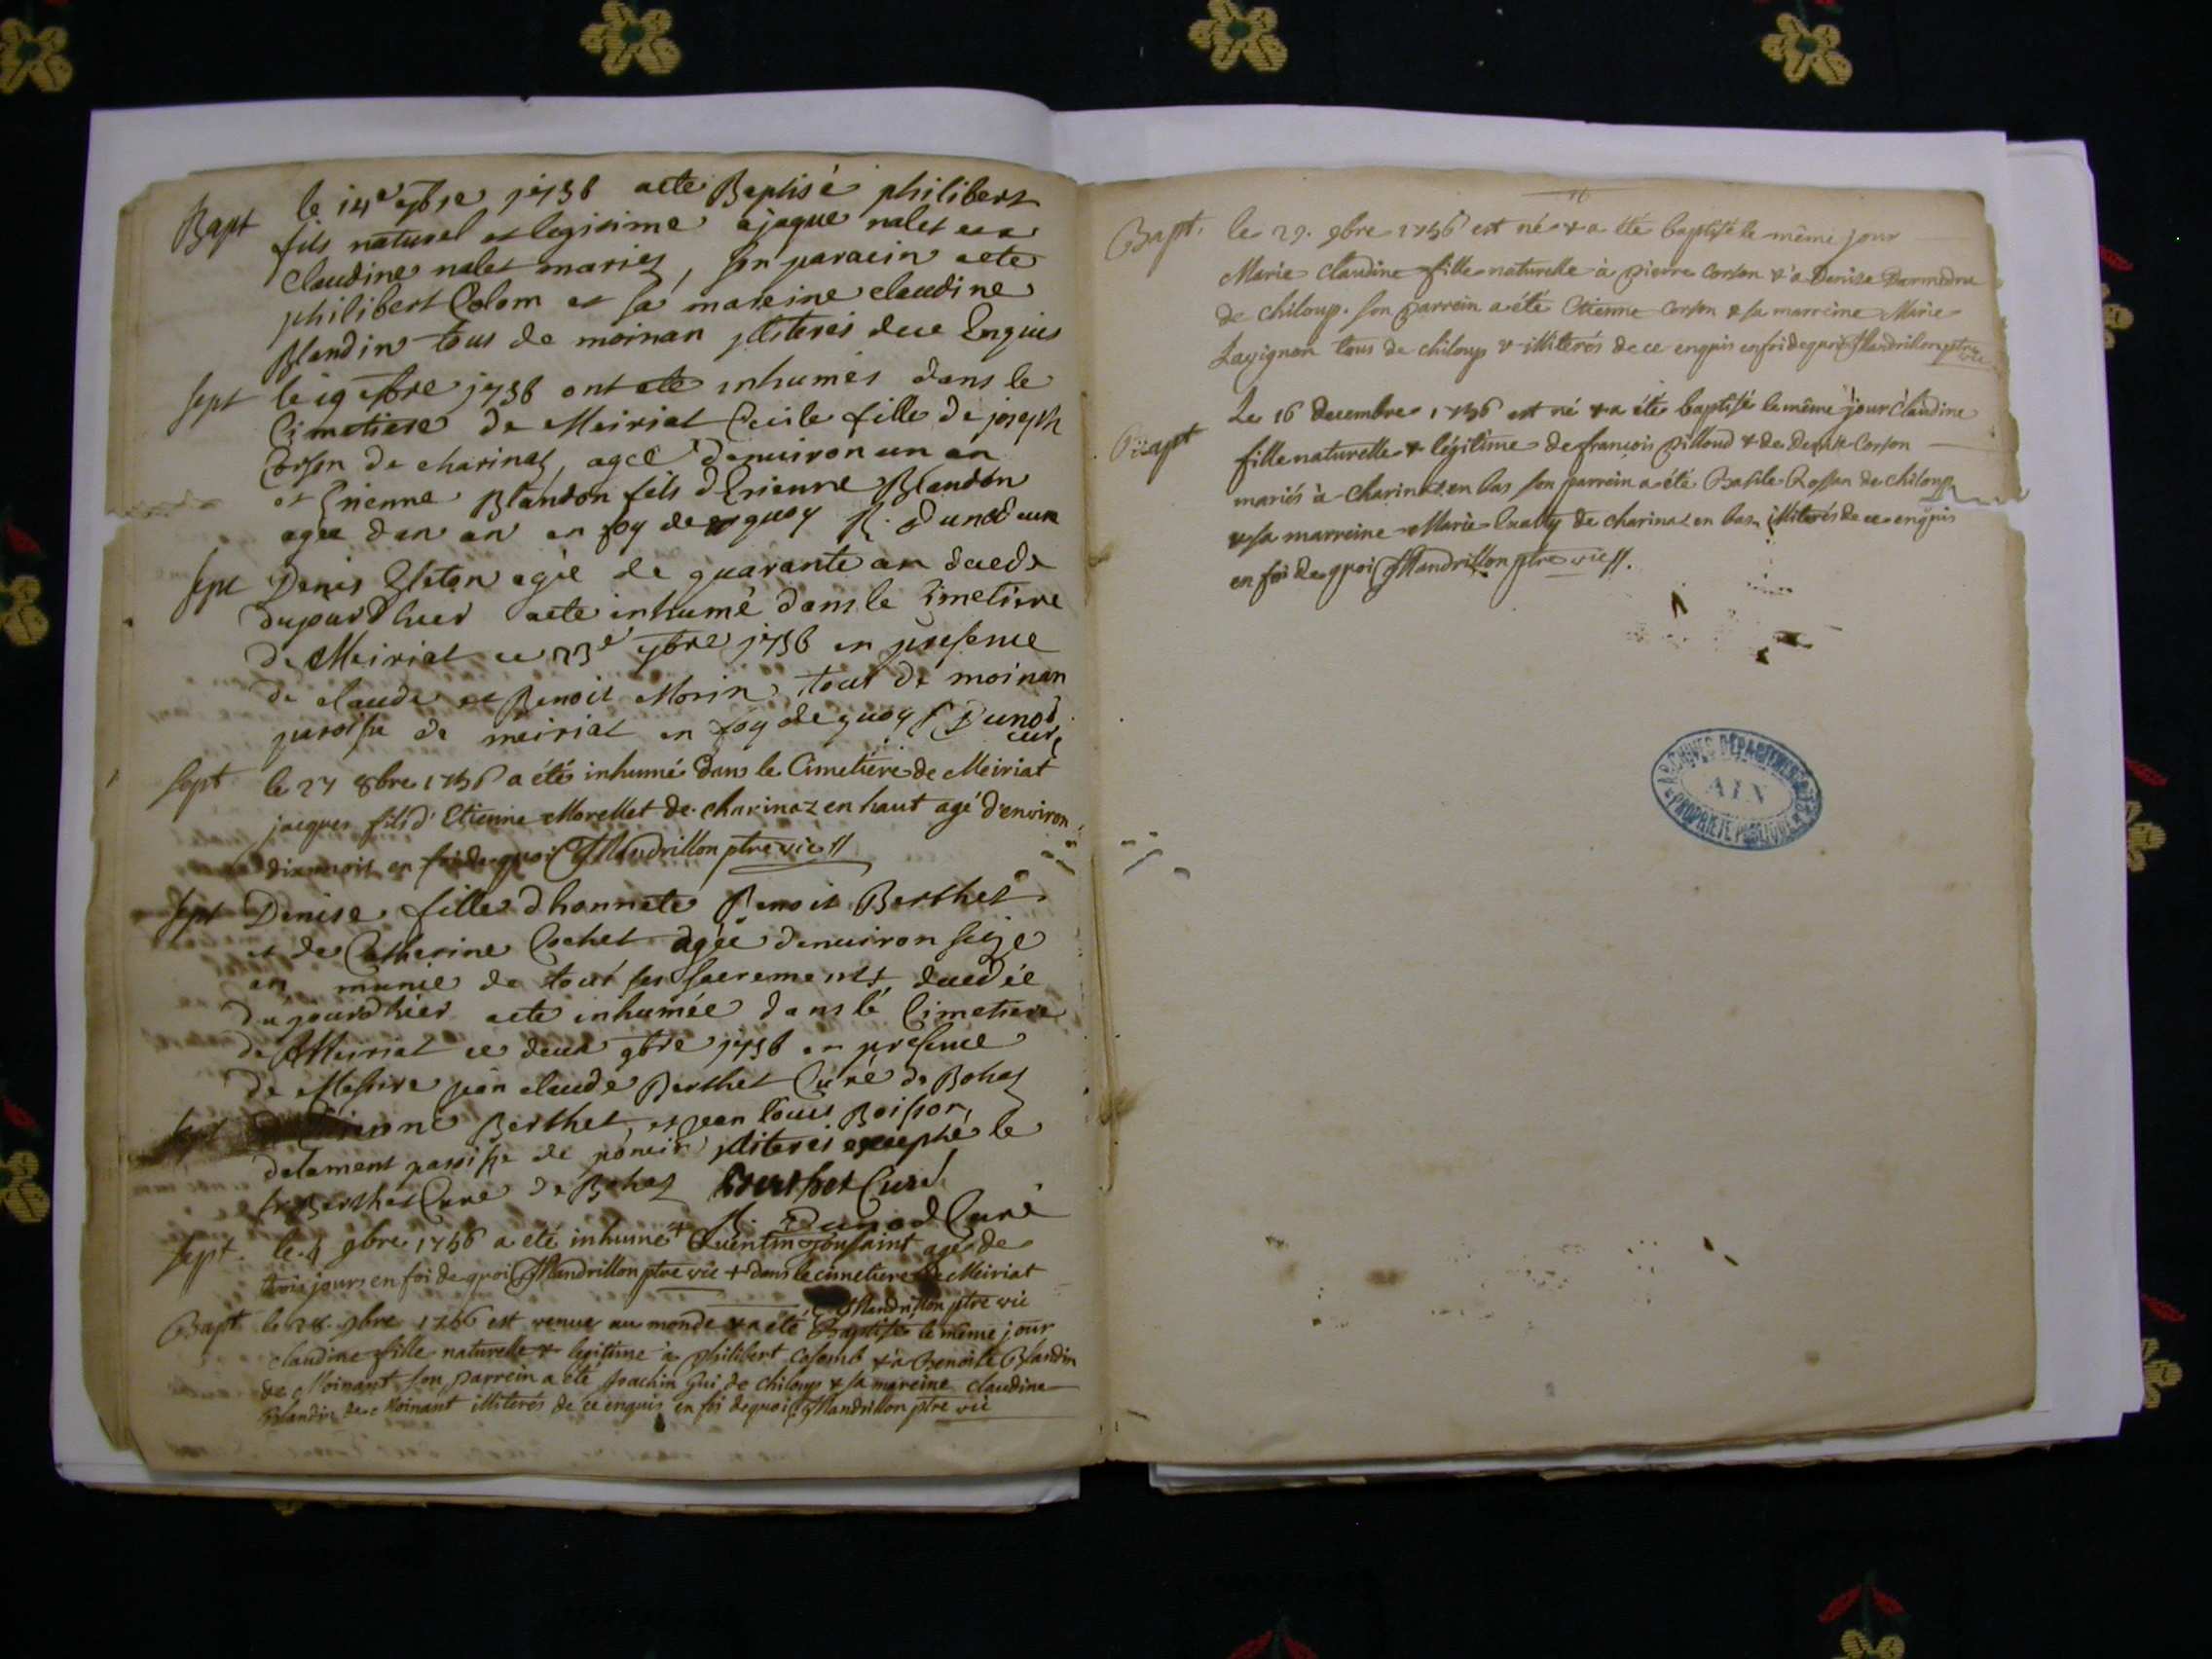 Bapt le 14e 7bre 1756 aete Baptisé philibert
fils naturel et legitime a jaque nalet et a
Claudine nalet mariez, son parain aete
philibert Colom et sa mareine claudine
Blandin tous de moinan illiterés de ce Enquis
sept le 19 7bre 1756 ont ete inhumés dans le
Cimetiere de Meiriat Cecile fille de joseph
Corson de charinaz, agée denuiron un an
et Etienne Blandon fils dEtienne Blandon
agee dun an en foy de quoy R. Dunod cure
sept Denis agéé de quarante an
dujourdhuer aete inhumé dans le Cimetiere
de Meiriat ce 23e 7bre 1756 en presence
de claude et Benoit Morin, tout de moinan
paroisse de meiriat en foy de quoy Dunod
curé
sept le 27 8bre 1756 a été inhumé dans le Cimetiére de Meiriat
jacques fils d'Etienne Morellet de charinaz en haut agé d'environ
dix mois en foi de quoi Mandrillon ptre vic //
sept Denise fille dhonnete Benoit Berthet
et de Catherine Cochet agée denuiron seize
an munie de tout ses sacrements
dujourdhier aete inhumée dans lé Cimetiere
de Meiriat ce deux 9bre 1756 en presence
de Messire jean claude Berthet Curé de Bohaz
Etienne Berthet, et jean louis Boisson,
illiterés excepté le
sr Berthet Curé de Bohaz Berthet Curé
R. Dunod Curé
sept. le 4 9bre 1756 a été inhumé + Quentin Toussaint agé de
trois jours en foi de quoi Mandrillon ptre vic + dans le cimetiere de Meiriat
Mandrillon ptre vic
Bapt le 28. 9bre 1756 est venue au monde & a été Baptisé le même jour
claudine fille naturelle & legitime à philibert Colomb & à Benoite Blandin
de Moinant son parrein a été Joachin Gui de chiloup & sa mareine claudine
Blandin de Moinant illiterés de ce enquis en foi de quoi Mandrillon ptre vic
Bapt. le 29. 9bre 1756 est né & a été baptisé le même jour
Marie claudine fille naturelle à pierre Corson & à Denise
de chiloup. son parrein a été Etienne Corson & sa marreine Marie
Lavignon tous de chiloup & illiterés de ce enquis en foi de quoi Mandrillon ptre
vic
Le 16 decembre 1756 est né & a été baptisé le même jour claudine
Bapt fille naturelle & légitime de francois pilloud & de Denise Corson
mariés à charinaz en bas son parrein a été Basile Rossan de chiloup
& sa marreine Marie de charinaz en bas illiterés de ce enquis
en foi de quoi Mandrillon ptre vic //.
ARCHIVES DÉPARTEMENTALES
AIN
PROPRIÉTÉ PUBLIQUE